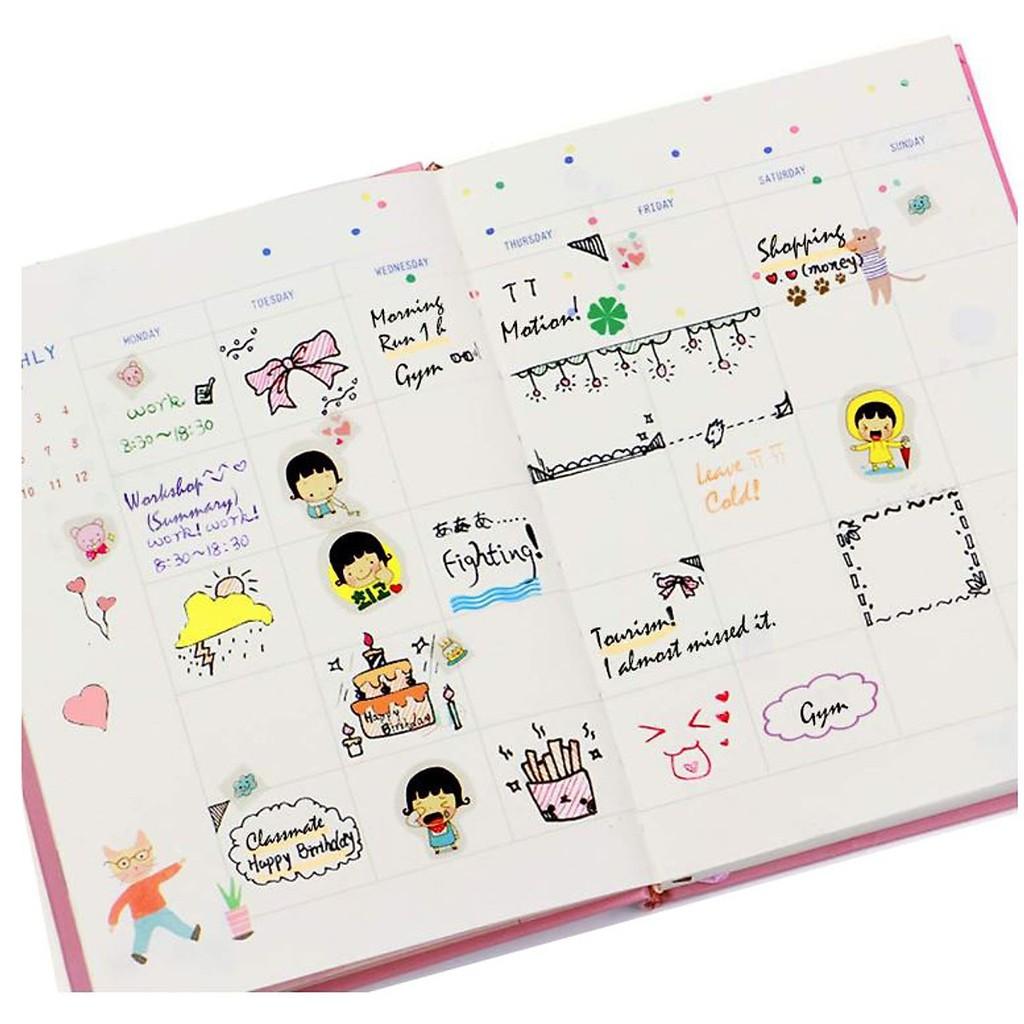 HLY
MONDAY
TUESDAY
WEDNESDAY
THURSDAY
FRIDAY
SATURDAY
SUNDAY
3 4
7 8
10 11 12
work
8:30~18:30
Morning
Run 1 h
Gym
TT
Motion!
Shopping
(money)
Workshop
(Summary)
work! work!
8:30~18:30
Leave
Cold!
ああああ......
Fighting!
Tourism!
I almost missed it.
Happy
Birthday
Gym
Classmate
Happy Birthday